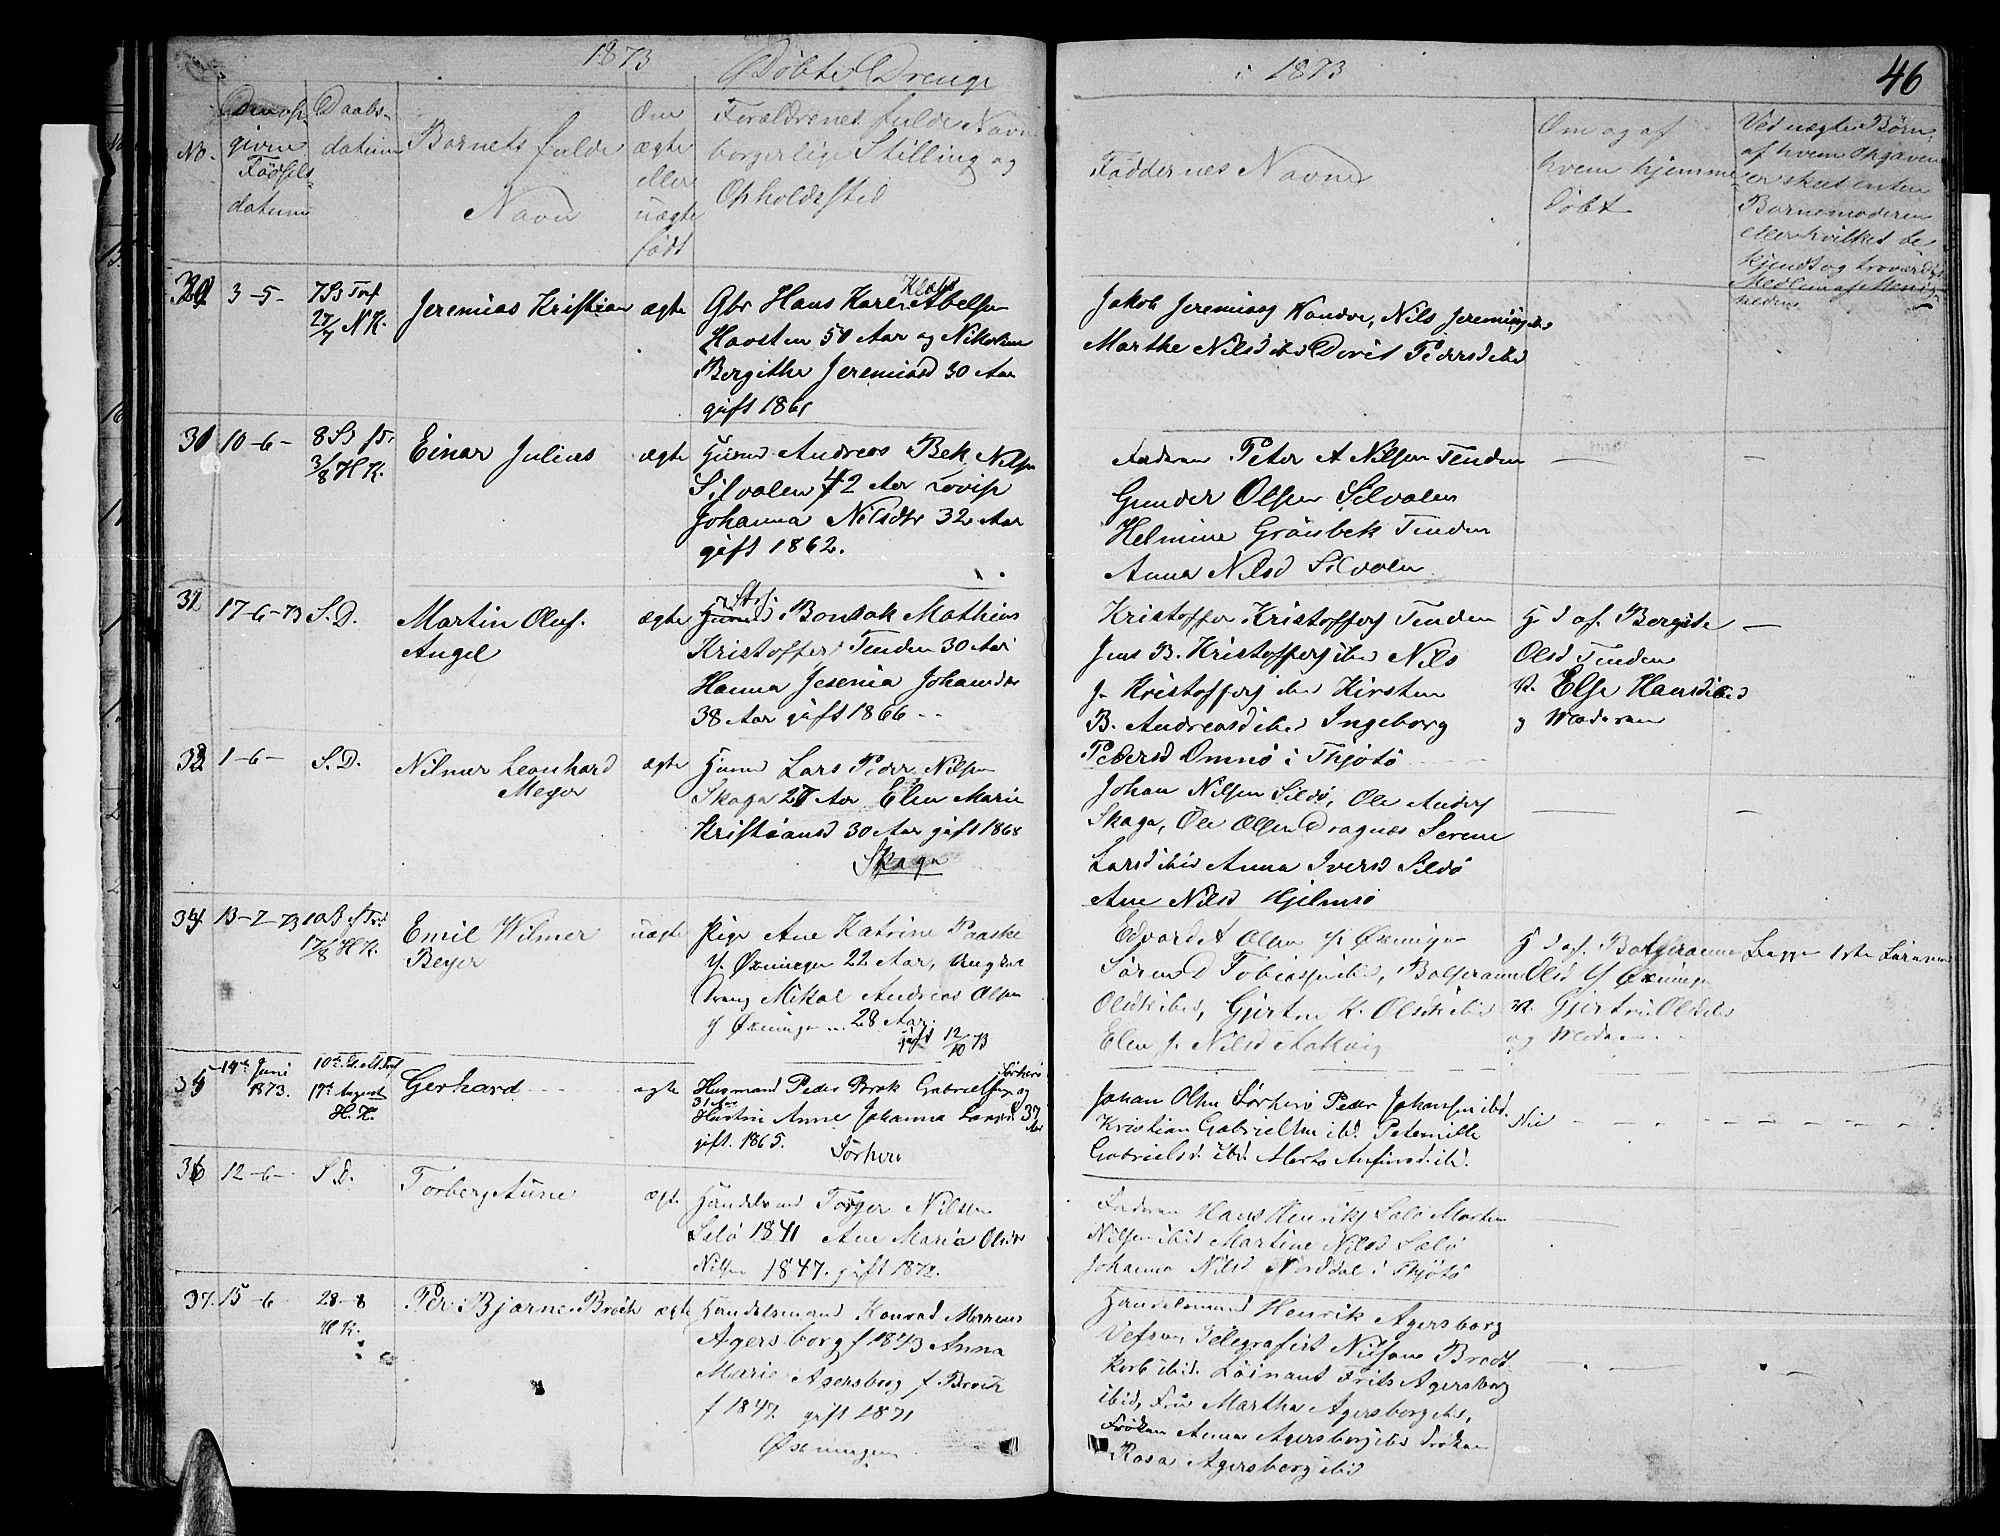 1873 Döbte Drenge
i 1873
46
No.
givne
Födsels-
datum
Daabs-
datum
Barnets fulde
Navn
Om
ægte
eller
uægte
född
Forældrenes fulde Navn
borgerlige Stilling og
Opholdssted
Faddernes Navne
Om og af
hvem hjemme
döbt
Ved uægte Börn
af hvem Opgaven
er skeet enten
Barnemoderen
eller hvilket be
kjendt og troværdigt
Medlem af Menig-
heden
3-5-
7 S3 Tref
27/7 N K.
Jeremias Kristian
ægte
Gbr Hans Karel Klaus Abelsen
Havsten 50 Aar og Nikoline
Bergithe Jeremiasd 30 Aar
gift 1861
Jakob Jeremiass Nils Jeremiass ibd
Marthe Nilsd ibd Dorit Pedersd ibd
31 10-6-
3/8 H K.
Einar Julius
ægte
Husmd Andreas Bek Nilsen
Silvalen 42 Aar Lovise
Johanna Nilsdtr 32 Aar
gift 1862.
Faderen Peter A Nilsen Tenden
Gunder Olsen Silvalen
Helmine Grönbek Tenden
Anna Nilsd Silvalen
32 17-6-73 S. D.
Martin Oluf
Angel
ægte
Mathias
Kristoffers Tenden 30 Aar
Hanna Jesenia Johansdtr
38 Aar gift 1866
Kristoffer Kristoffers Tenden
Jens B. Kristoffers ibd Nils
J. Kristoffers ibd Kirsten
B. Andreasd ibd Ingeborg
Pedersd Omnö i Thjötö
H d af Bergite
Olsd Tenden
V. Else Hansd ibd
og Moderen
33 1-6- S. D.
Nilmer Leonhard
Meyer
ægte
Husmd Lars Peder Nilsen
Skaga 27 Aar Elen Marie
Kristiansd 30 Aar gift 1868
Skaga
Johan Nilsen Sildö, Ole Anders
Skaga, Ole Olsen Dragnes Serene
Larsd ibid Anna Iversd Sildö
Ane Nilsd Hjelmsö
34 13-7-73
17/8 H K.
Emil Wilmer
Beyer
uægte
Pige Ane Katrine Paaske
Y. Öxningen 22 Aar, Ungkar
Mikal Andreas Olsen
Y Öxningen 28 Aar.
gift 12/10 73
Edvard A Olsen Y Öxningen
Sören D Tobiassen ibd,
Olsdtr ibid, Gjertru K. Olsdtr ibid
Elen J. Nilsd
H d af
Olsd Y Öxningen
V. Gjertru Olsd ibd
og Moderen
35 19de Juni
1873.
17de August
H. K.
Gerhard
ægte
Husmand Peder Brok Gabrielsen Sörherö og
31 Aar
Hustru Anne Johanna Larsd. 37 Aar
gift. 1865. Sörherö
Johan Olsen Sörherö Peder Johansen ibd.
Kristian Gabrielsen ibd. Petemille
Gabrielsd. ibd. Marta Anfinsd. ibd.
Nei
36 12-6- S D.
Torberg Aune
ægte
Handelsmd Torger Nilsen
Selö 1841 Ane Maria Olsdtr
Nilsen 1847. gift 1872.
Faderen Hans Henriks Selö Morten
Nilsen ibid Martine Nilsd Selö
Johanna Nilsd Norddal i Thjötö
37. 15-6 28-8
H K.
Per Bjarne Broch
ægte
Handelsmand Konrad
Agersborg f 1843 Anna
Marie Agersborg f Broch
f 1847. gift 1871
Öxningen
Handelsmand Henrik Agersborg
Vefsen Telegrafist
ibid. Löinant Frits Agersborg
ibid, Fru Martha Agersborg ibd,
Fröken Anna Agersborg ibd Fröken
Rosa Agersborg ibid